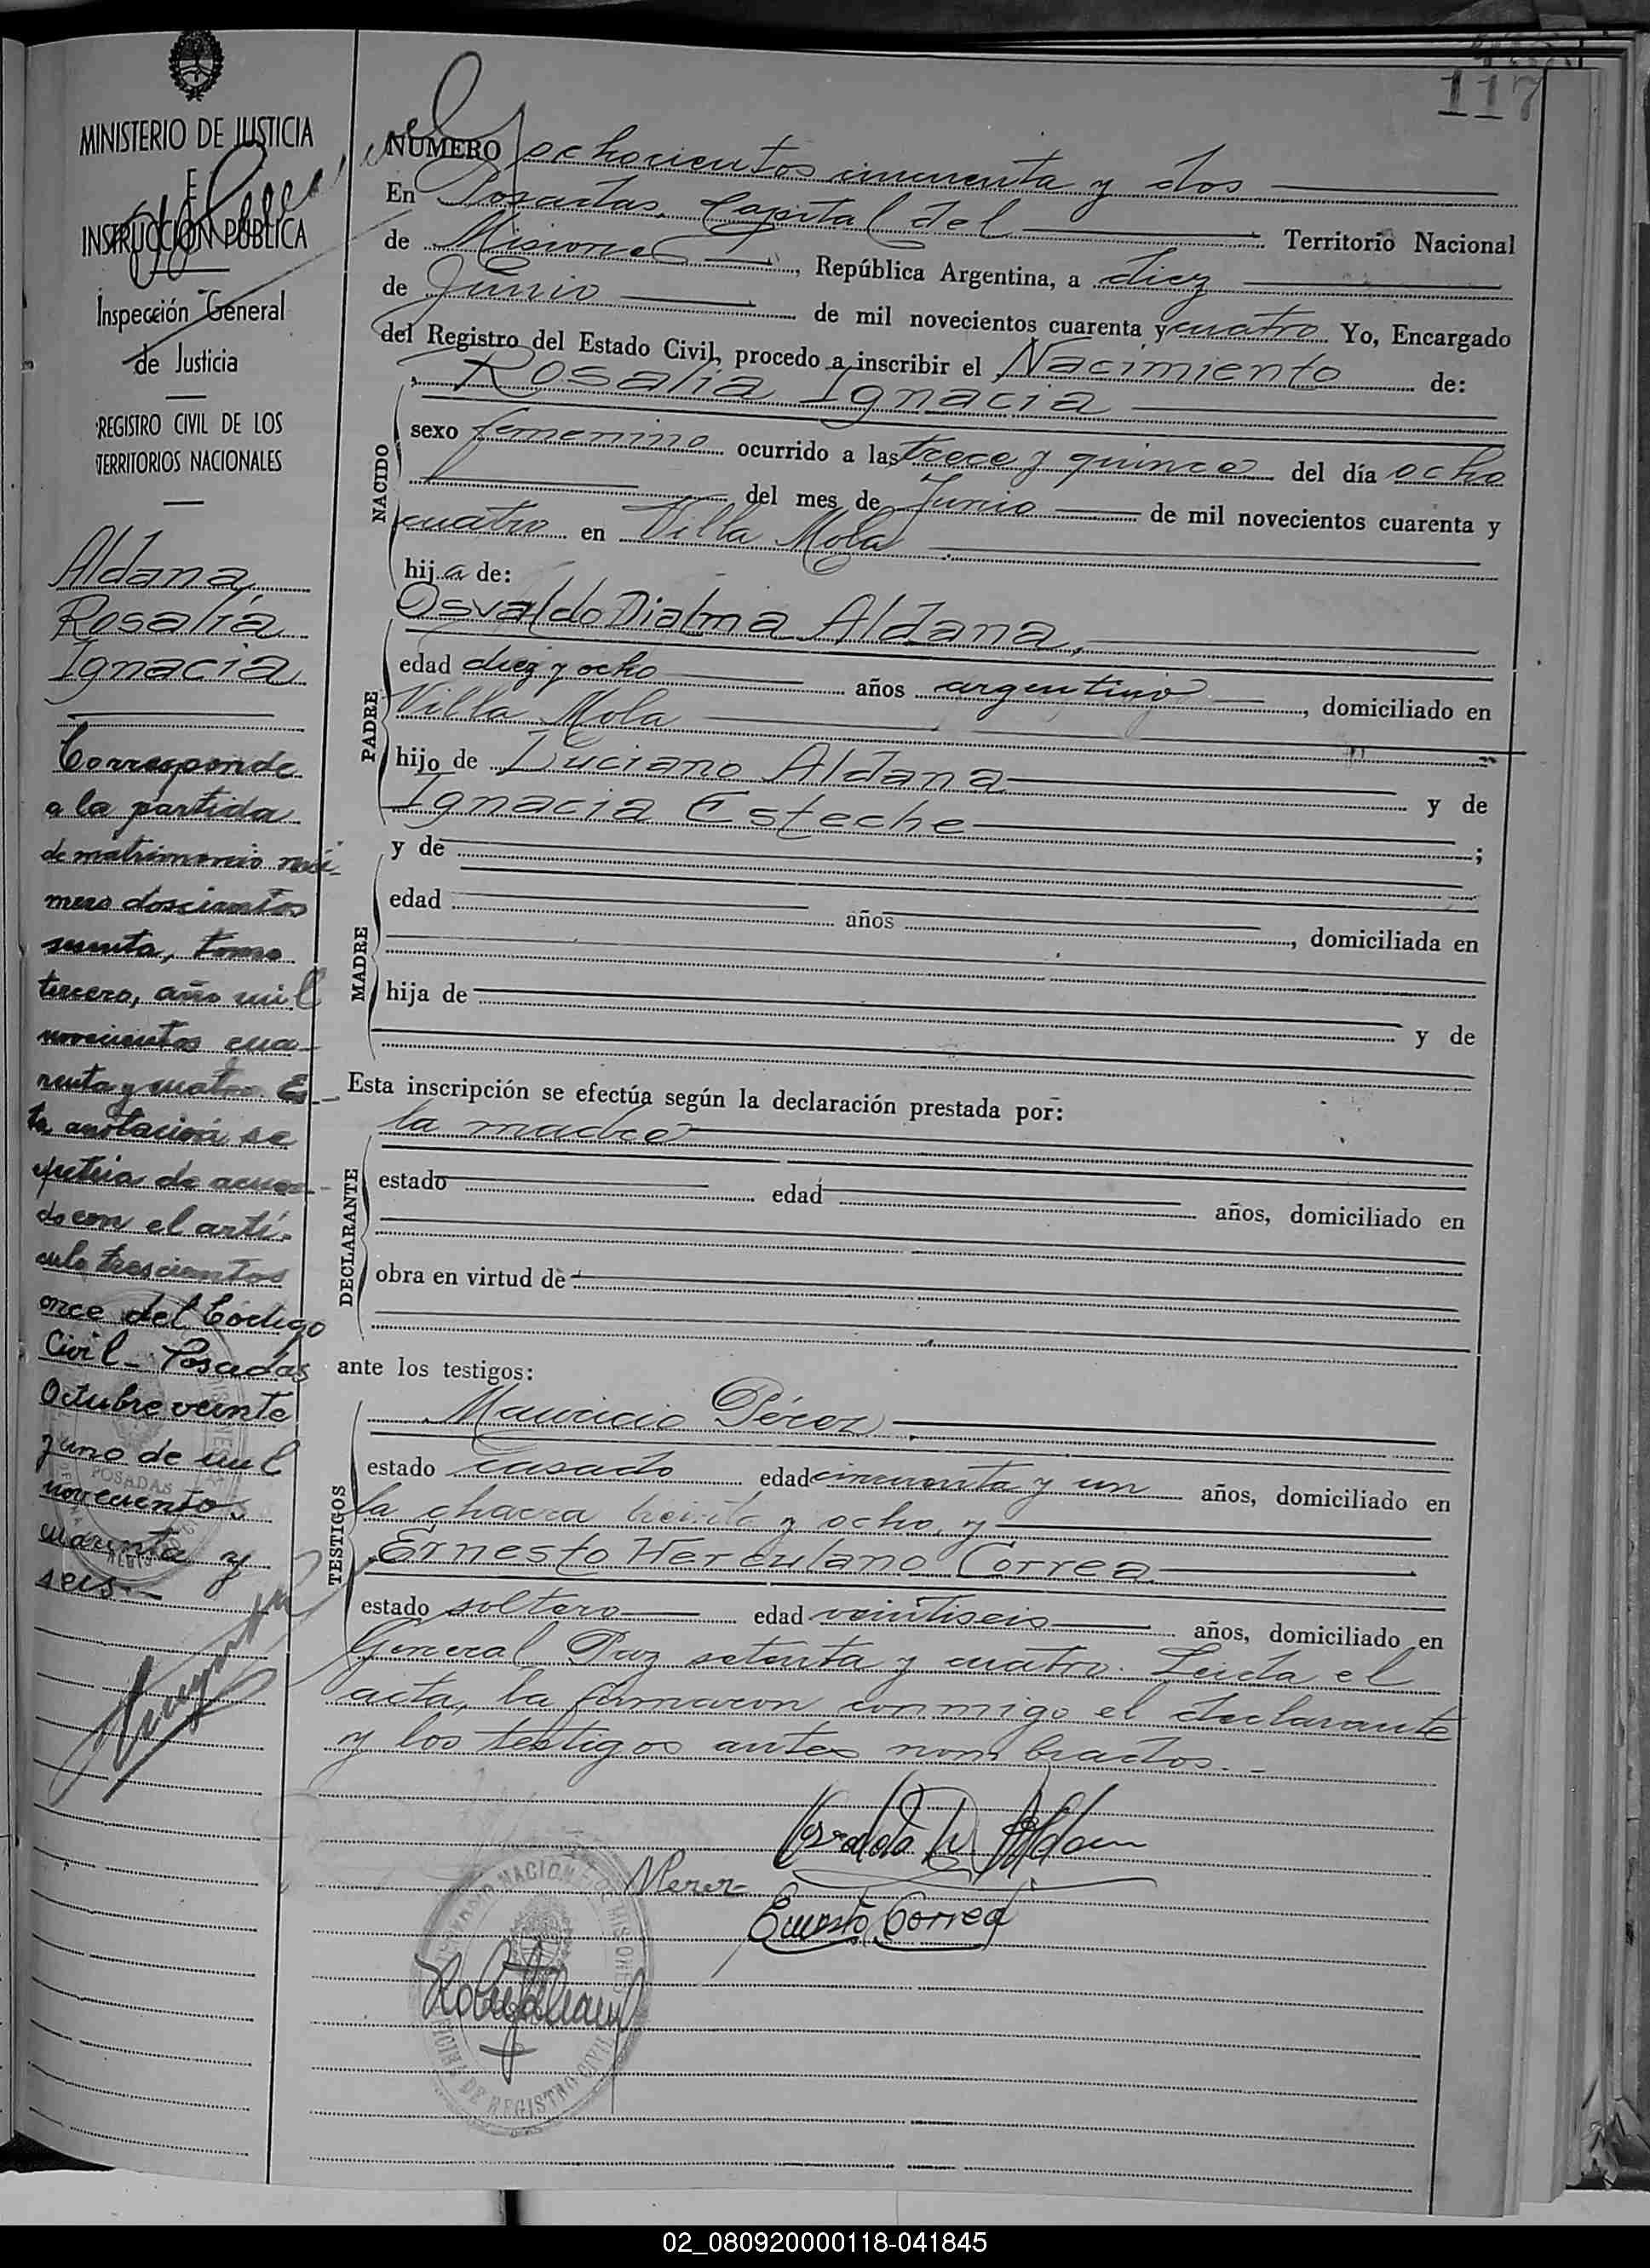 117
MINISTERIO DE JUSTICIA
E
INSTRUCCIÓN PÚBLICA
Inspección General
de Justicia
REGISTRO CIVIL DE LOS
TERRITORIOS NACIONALES
Aldana,
Rosalía
Ignacia
Corresponde
a la partida
de matrimonio nú-
mero doscientos
tomo
tercero, año mil
novecientos cua-
renta y cuatro. Es-
ta anotación se
efectúa de acuer-
do con el artí-
culo trescientos
once del Código
Civil - Posadas
Octubre veinte
y uno de mil
novecientos
cuarenta y
seis.-
NÚMERO ochocientos cincuenta y dos
En Posadas, Capital del Territorio Nacional
de Misiones, República Argentina, a diez
de Junio de mil novecientos cuarenta y cuatro Yo, Encargado
del Registro del Estado Civil, procedo a inscribir el Nacimiento de:
Rosalía Ignacia
NACIDO
sexo femenino ocurrido a las trece y quince del día ocho
del mes de Junio de mil novecientos cuarenta y
cuatro en Villa Mola
hija de:
Osvaldo Dialma Aldana,
PADRE
edad diez y ocho años argentino, domiciliado en
Villa Mola
hijo de Luciano Aldana y de
Ignacia Esteche
y de ;
MADRE
edad años , domiciliada en
hija de y de
Esta inscripción se efectúa según la declaración prestada por:
la madre
DECLARANTE
estado edad años, domiciliado en
obra en virtud de
ante los testigos:
TESTIGOS
Mauricio Pérez
estado casado edad cincuenta y un años, domiciliado en
la chacra treinta y ocho, y
Ernesto Herculano Correa
estado soltero edad veintiseis años, domiciliado en
General Paz setenta y cuatro. Leída el
acta, la firmaron conmigo el declarante
y los testigos antes nombrados.-
Osvaldo D. Aldana
Ernesto Correa
POSADAS
OFICINA DE REGISTRO CIVIL
02_080920000118-041845